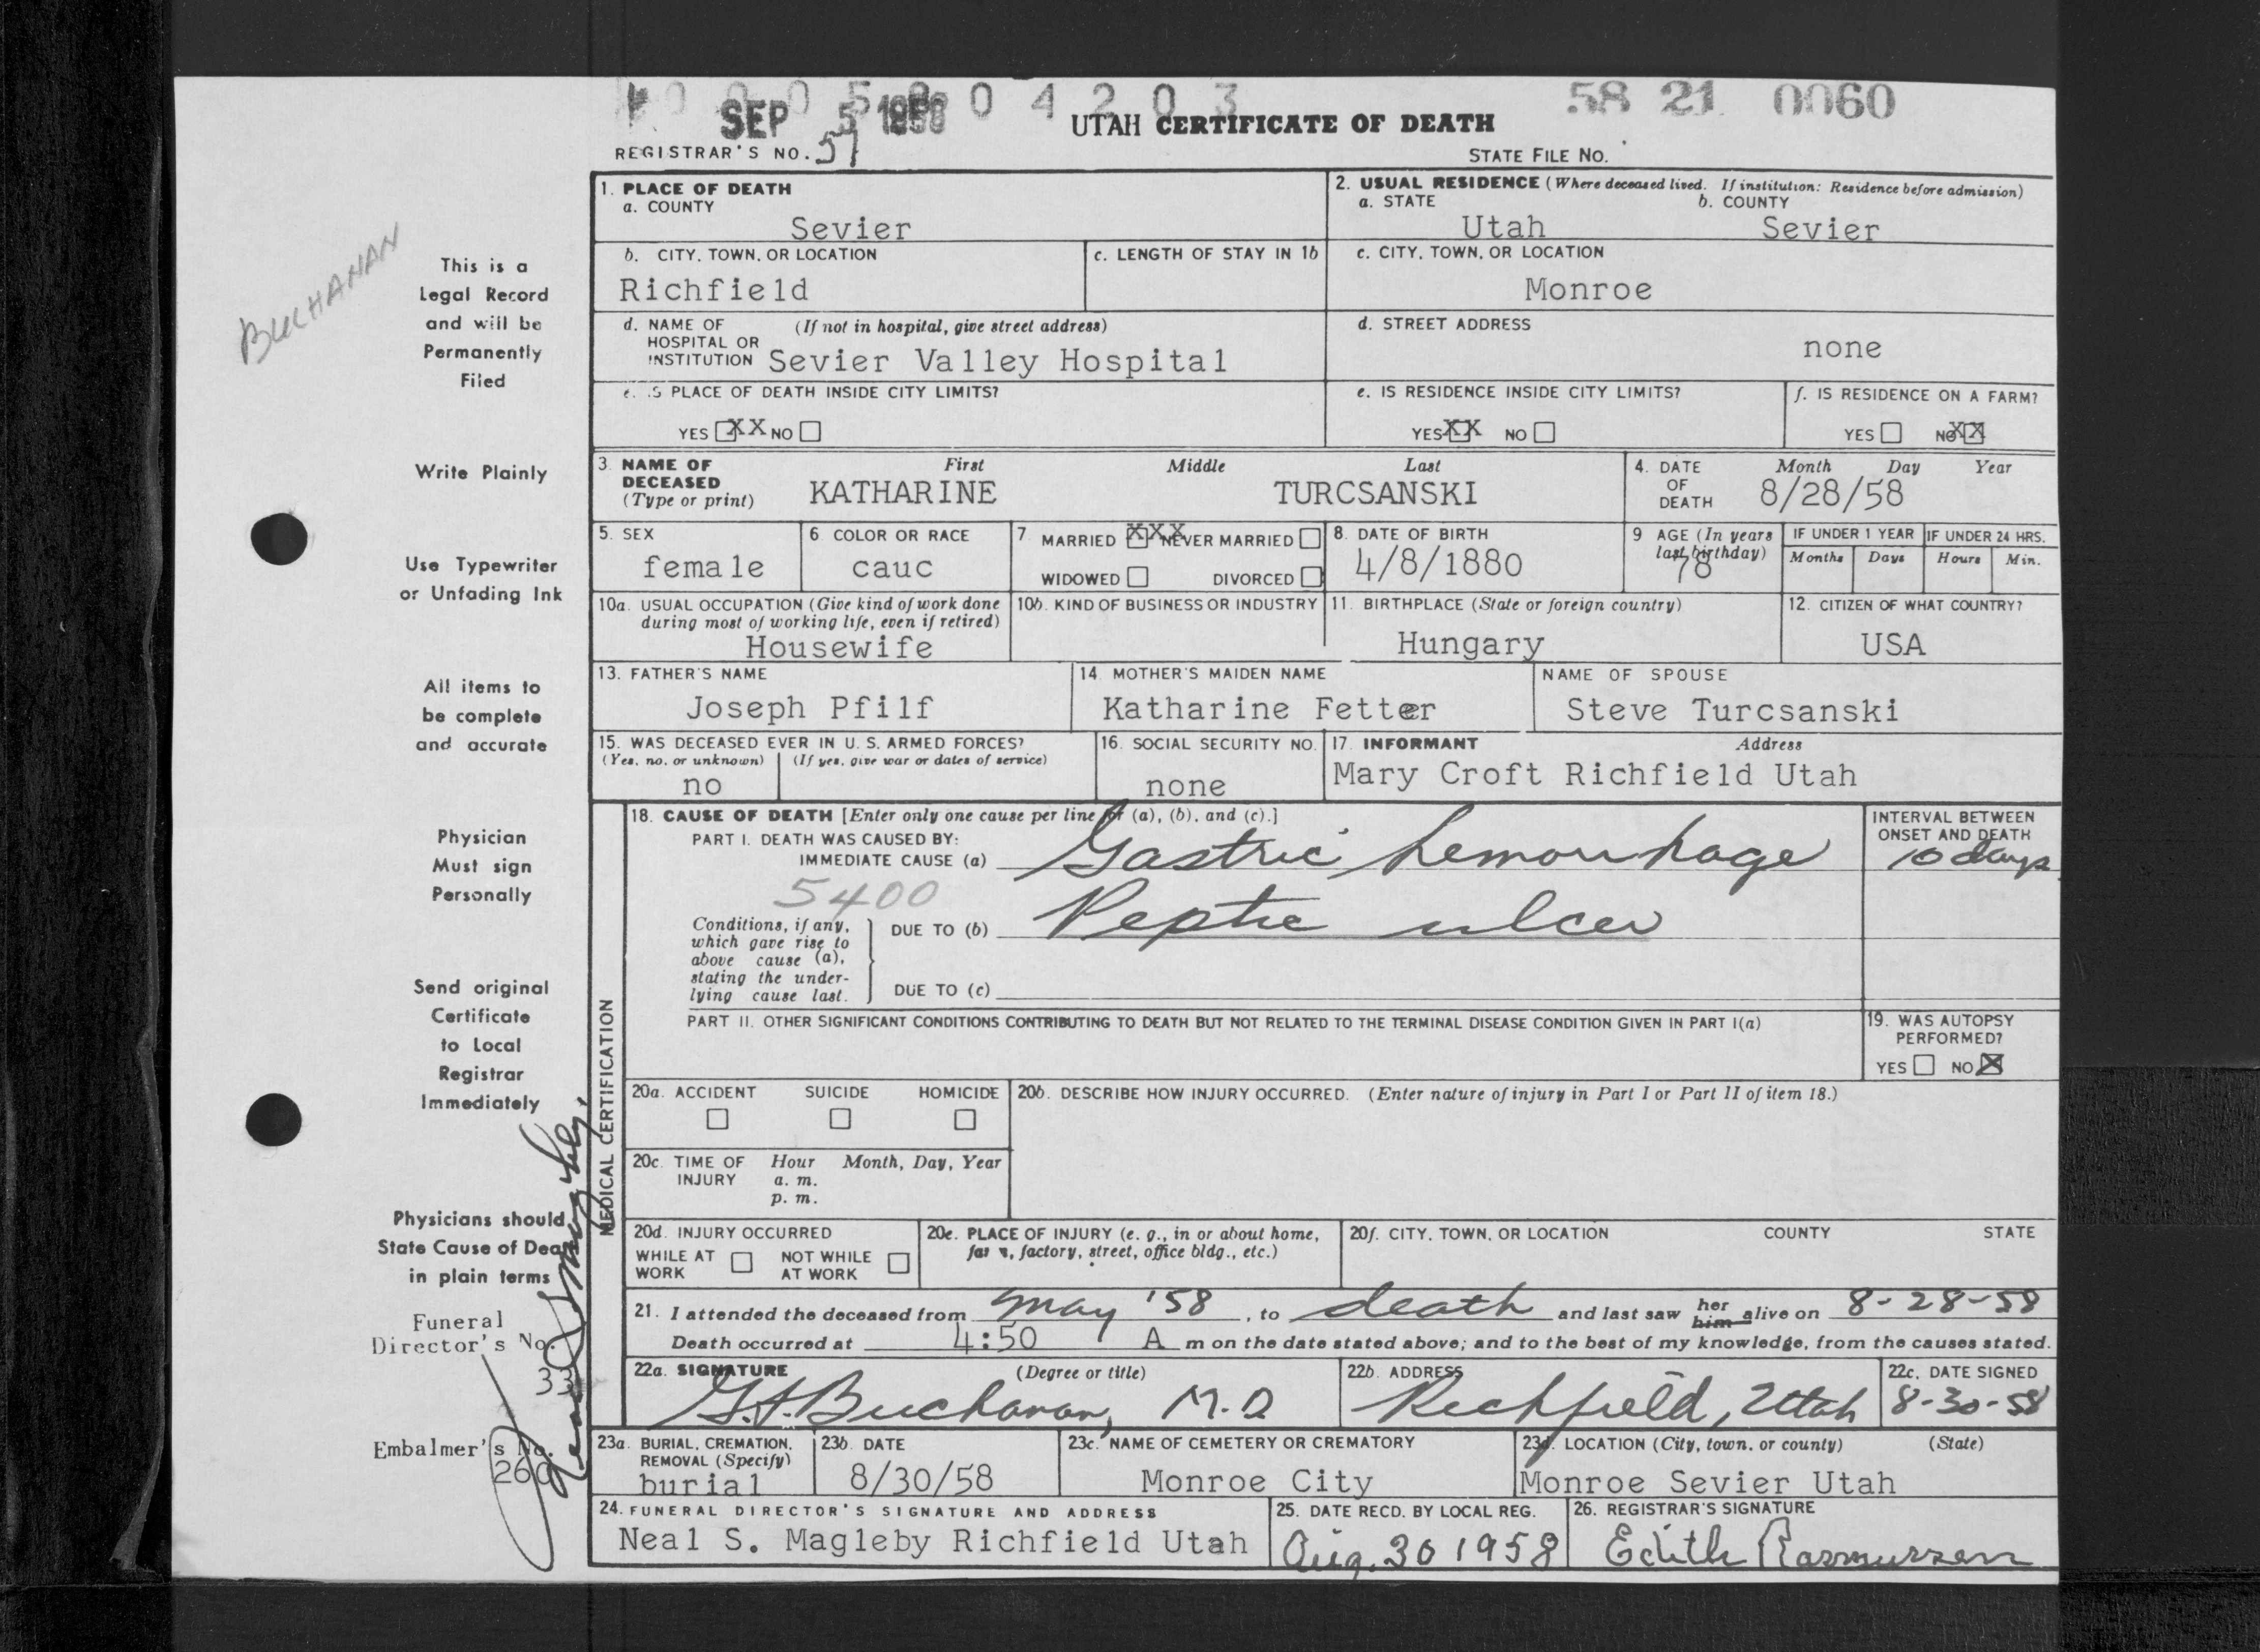 0 0 0 5 8 0 0 4 2 0 3
58 21 0060
SEP 5 1958
UTAH CERTIFICATE OF DEATH
REGISTRAR'S NO. 51
STATE FILE NO.
BUCHANAN
This is a
Legal Record
and will be
Permanently
Filed
Write Plainly
Use Typewriter
or Unfading Ink
All items to
be complete
and accurate
Physician
Must sign
Personally
Send original
Certificate
to Local
Registrar
Immediately
Physicians should
State Cause of Death
in plain terms
Funeral
Director's No.
33
Embalmer's No.
260
Neal S Magleby
1. PLACE OF DEATH
a. COUNTY
Sevier
2. USUAL RESIDENCE (Where deceased lived. If institution: Residence before admission)
a. STATE b. COUNTY
Utah Sevier
b. CITY, TOWN, OR LOCATION
Richfield
c. LENGTH OF STAY IN 1b
c. CITY, TOWN, OR LOCATION
Monroe
d. NAME OF (If not in hospital, give street address)
HOSPITAL OR
INSTITUTION Sevier Valley Hospital
d. STREET ADDRESS
none
e. IS PLACE OF DEATH INSIDE CITY LIMITS?
YES XX NO
e. IS RESIDENCE INSIDE CITY LIMITS?
YES XX NO
f. IS RESIDENCE ON A FARM?
YES NO XX
3. NAME OF First Middle Last
DECEASED
(Type or print) KATHARINE TURCSANSKI
4. DATE Month Day Year
OF
DEATH 8/28/58
5. SEX
female
6 COLOR OR RACE
cauc
7 MARRIED XXX NEVER MARRIED
WIDOWED DIVORCED
8. DATE OF BIRTH
4/8/1880
9 AGE (In years
last birthday)
78
IF UNDER 1 YEAR
Months Days
IF UNDER 24 HRS.
Hours Min.
10a. USUAL OCCUPATION (Give kind of work done
during most of working life, even if retired)
Housewife
10b. KIND OF BUSINESS OR INDUSTRY
11. BIRTHPLACE (State or foreign country)
Hungary
12. CITIZEN OF WHAT COUNTRY?
USA
13. FATHER'S NAME
Joseph Pfilf
14. MOTHER'S MAIDEN NAME
Katharine Fetter
NAME OF SPOUSE
Steve Turcsanski
15. WAS DECEASED EVER IN U. S. ARMED FORCES?
(Yes, no, or unknown) (If yes, give war or dates of service)
no
16. SOCIAL SECURITY NO.
none
17. INFORMANT Address
Mary Croft Richfield Utah
MEDICAL CERTIFICATION
18. CAUSE OF DEATH [Enter only one cause per line for (a), (b), and (c).]
PART I. DEATH WAS CAUSED BY:
IMMEDIATE CAUSE (a) Gastric hemorrhage
INTERVAL BETWEEN
ONSET AND DEATH
10 days
5400
Conditions, if any,
which gave rise to
above cause (a),
stating the under-
lying cause last.
DUE TO (b) Peptic ulcer
DUE TO (c)
PART II. OTHER SIGNIFICANT CONDITIONS CONTRIBUTING TO DEATH BUT NOT RELATED TO THE TERMINAL DISEASE CONDITION GIVEN IN PART I(a)
19. WAS AUTOPSY
PERFORMED?
YES NO X
20a. ACCIDENT SUICIDE HOMICIDE
20b. DESCRIBE HOW INJURY OCCURRED. (Enter nature of injury in Part I or Part II of item 18.)
20c. TIME OF Hour Month, Day, Year
INJURY a. m.
p. m.
20d. INJURY OCCURRED
WHILE AT NOT WHILE
WORK AT WORK
20e. PLACE OF INJURY (e. g., in or about home,
farm, factory, street, office bldg., etc.)
20f. CITY, TOWN, OR LOCATION COUNTY STATE
21. I attended the deceased from May '58, to death and last saw her him alive on 8-28-58
Death occurred at 4:50 A m on the date stated above; and to the best of my knowledge, from the causes stated.
22a. SIGNATURE (Degree or title)
Buchanan, M.D
22b. ADDRESS
Richfield, Utah
22c. DATE SIGNED
8-30-58
23a. BURIAL, CREMATION,
REMOVAL (Specify)
burial
23b. DATE
8/30/58
23c. NAME OF CEMETERY OR CREMATORY
Monroe City
23d. LOCATION (City, town, or county) (State)
Monroe Sevier Utah
24. FUNERAL DIRECTOR'S SIGNATURE AND ADDRESS
Neal S. Magleby Richfield Utah
25. DATE RECD. BY LOCAL REG.
Aug. 30 1958
26. REGISTRAR'S SIGNATURE
Edith Rasmussen